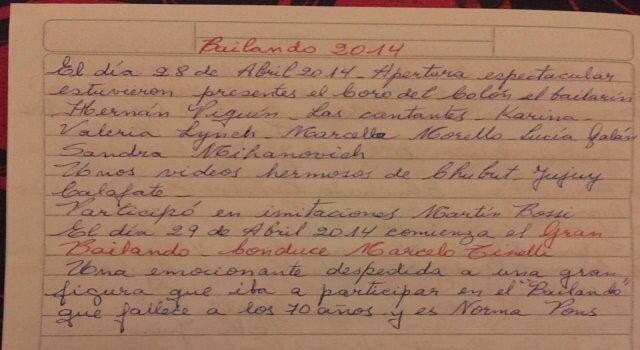 Bailando 2014
El día 28 de Abril 2014 - Apertura espectacular
estuvieron presentes el Coro del Colón, el bailarín
Hernán Piquín - Las cantantes - Karina -
Valeria Lynch - Marcella Morello Lucía Galán
Sandra Mihanovich
Unos videos hermosos de Chubut - Jujuy
Calafate -
Participó en imitaciones Martín Bossi
El día 29 de Abril 2014 comienza el Gran
Bailando - Conduce Marcelo Tinelli
Una emocionante despedida a una gran
figura que iba a participar en el "Bailando"
que fallece a los 70 años y es Norma Pons